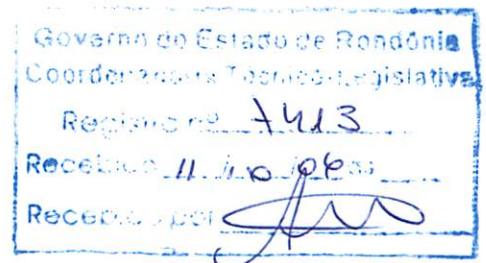 Governo do Estado de Rondônia
Coordenadoria Técnico-Legislativa
Registro nº 7413
Recebido 11 10 06
Recebido por